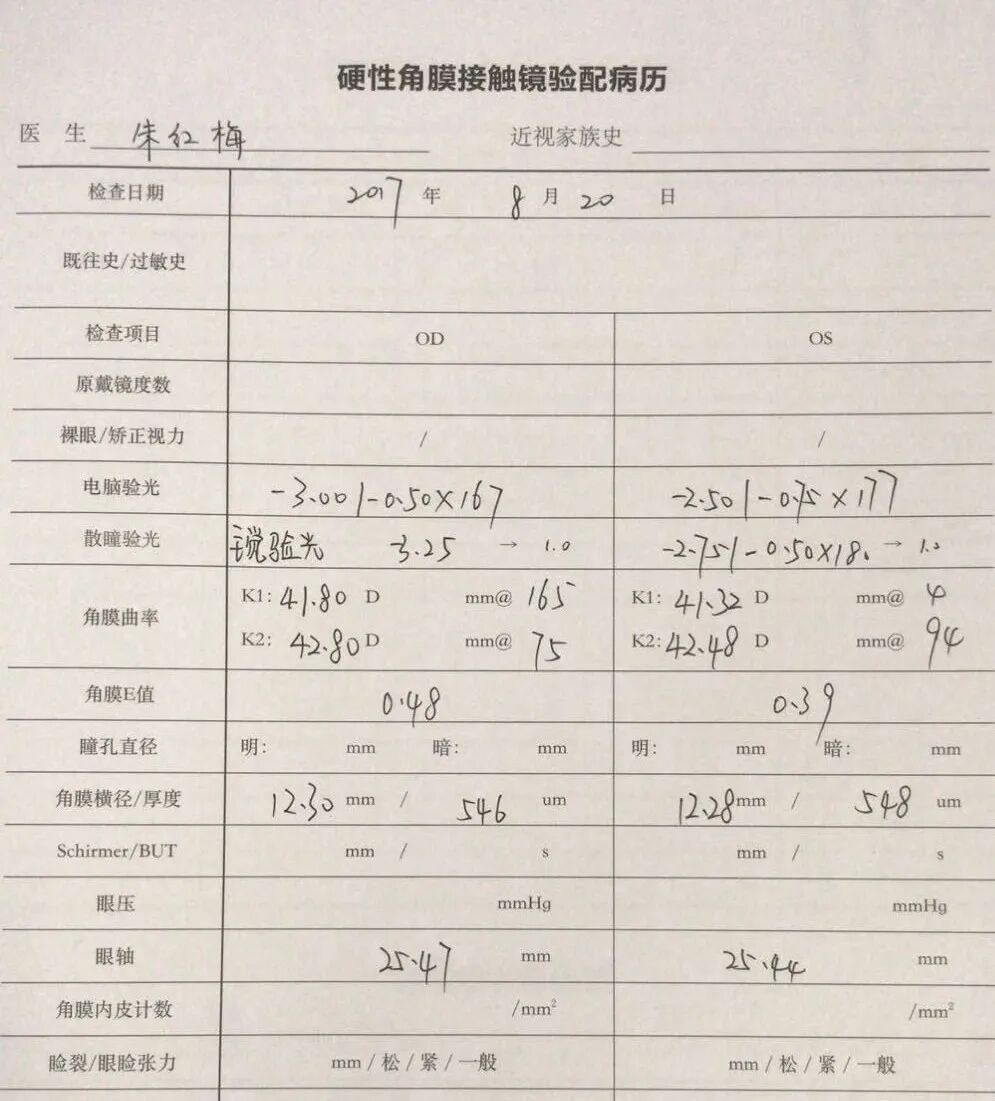 硬性角膜接触镜验配病历
医 生 朱红梅 近视家族史
检查日期 2017 年 8 月 20 日
既往史/过敏史
检查项目 OD OS
原戴镜度数
裸眼/矫正视力 / /
电脑验光 -3.00/-0.50×167 -2.50/-0.75×177
散瞳验光 主觉验光 -3.25 → 1.0 -2.75/-0.50×180 → 1.0
角膜曲率 K1: 41.80 D mm@ 165 K1: 41.32 D mm@ 4
K2: 42.80 D mm@ 75 K2: 42.48 D mm@ 94
角膜E值 0.48 0.39
瞳孔直径 明: mm 暗: mm 明: mm 暗: mm
角膜横径/厚度 12.30 mm / 546 um 12.28 mm / 548 um
Schirmer/BUT mm / s mm / s
眼压 mmHg mmHg
眼轴 25.47 mm 25.44 mm
角膜内皮计数 /mm² /mm²
睑裂/眼睑张力 mm / 松 / 紧 / 一般 mm / 松 / 紧 / 一般